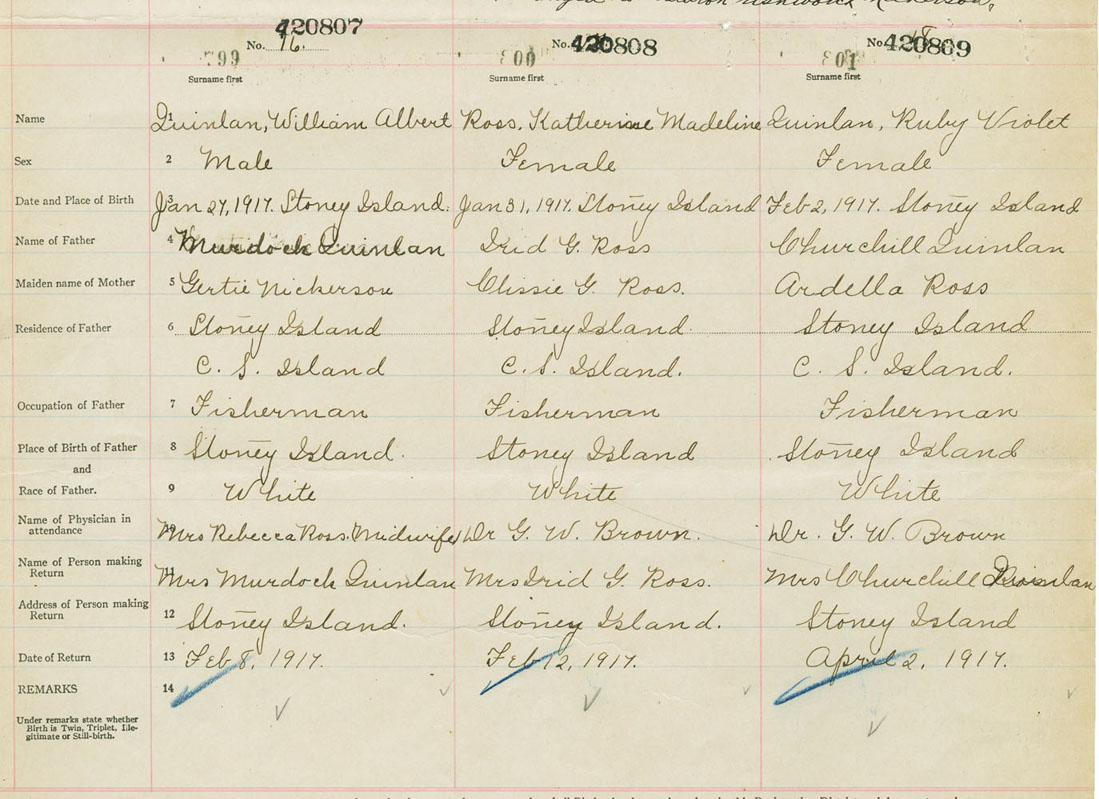 420807 420808 420809
No. 16. No. No. 18
799 800 801
Surname first Surname first Surname first
Name 1 Quinlan, William Albert Ross, Katherine Madeline Quinlan, Ruby Violet
Sex 2 Male Female Female
Date and Place of Birth 3 Jan 27, 1917. Stoney Island. Jan 31, 1917. Stoney Island Feb 2, 1917. Stoney Island
Name of Father 4 Murdock Quinlan Irid G. Ross Churchill Quinlan
Maiden name of Mother 5 Gertie Nickerson Clissie G. Ross. Ardella Ross
Residence of Father 6 Stoney Island Stoney Island. Stoney Island
C. S. Island C. S. Island. C. S. Island.
Occupation of Father 7 Fisherman Fisherman Fisherman
Place of Birth of Father 8 Stoney Island. Stoney Island Stoney Island
and
Race of Father. 9 White White White
Name of Physician in attendance 10 Mrs Rebecca Ross. Midwife Dr G. W. Brown. Dr. G. W. Brown
Name of Person making Return 11 Mrs Murdock Quinlan Mrs Irid G. Ross. Mrs Churchill Quinlan
Address of Person making Return 12 Stoney Island. Stoney Island. Stoney Island
Date of Return 13 Feb 8, 1917. Feb 12, 1917. April 2, 1917.
REMARKS 14
Under remarks state whether
Birth is Twin, Triplet, Ille-
gitimate or Still-birth.